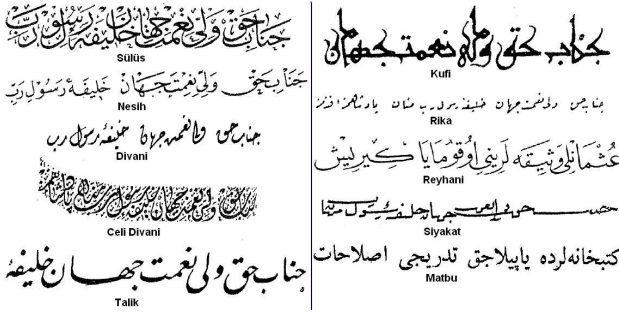 جناب حق ولی نعمت جهان خلیفهٔ رسول رب
Sülüs
جناب حق ولی نعمت جهان خلیفهٔ رسول رب
Nesih
جناب حق ولی نعمت جهان خلیفهٔ رسول رب
Divani
Celi Divani
جناب حق ولی نعمت جهان خلیفهٔ
Talik
جناب حق ولی نعمت جهان
Kufi
جناب حق ولی نعمت جهان
Rika
عثمانلی وثیقه لرینی اوقومایا کیریش
Reyhani
Siyakat
کتبخانه لرده یاپیلاجق تدریجی اصلاحات
Matbu